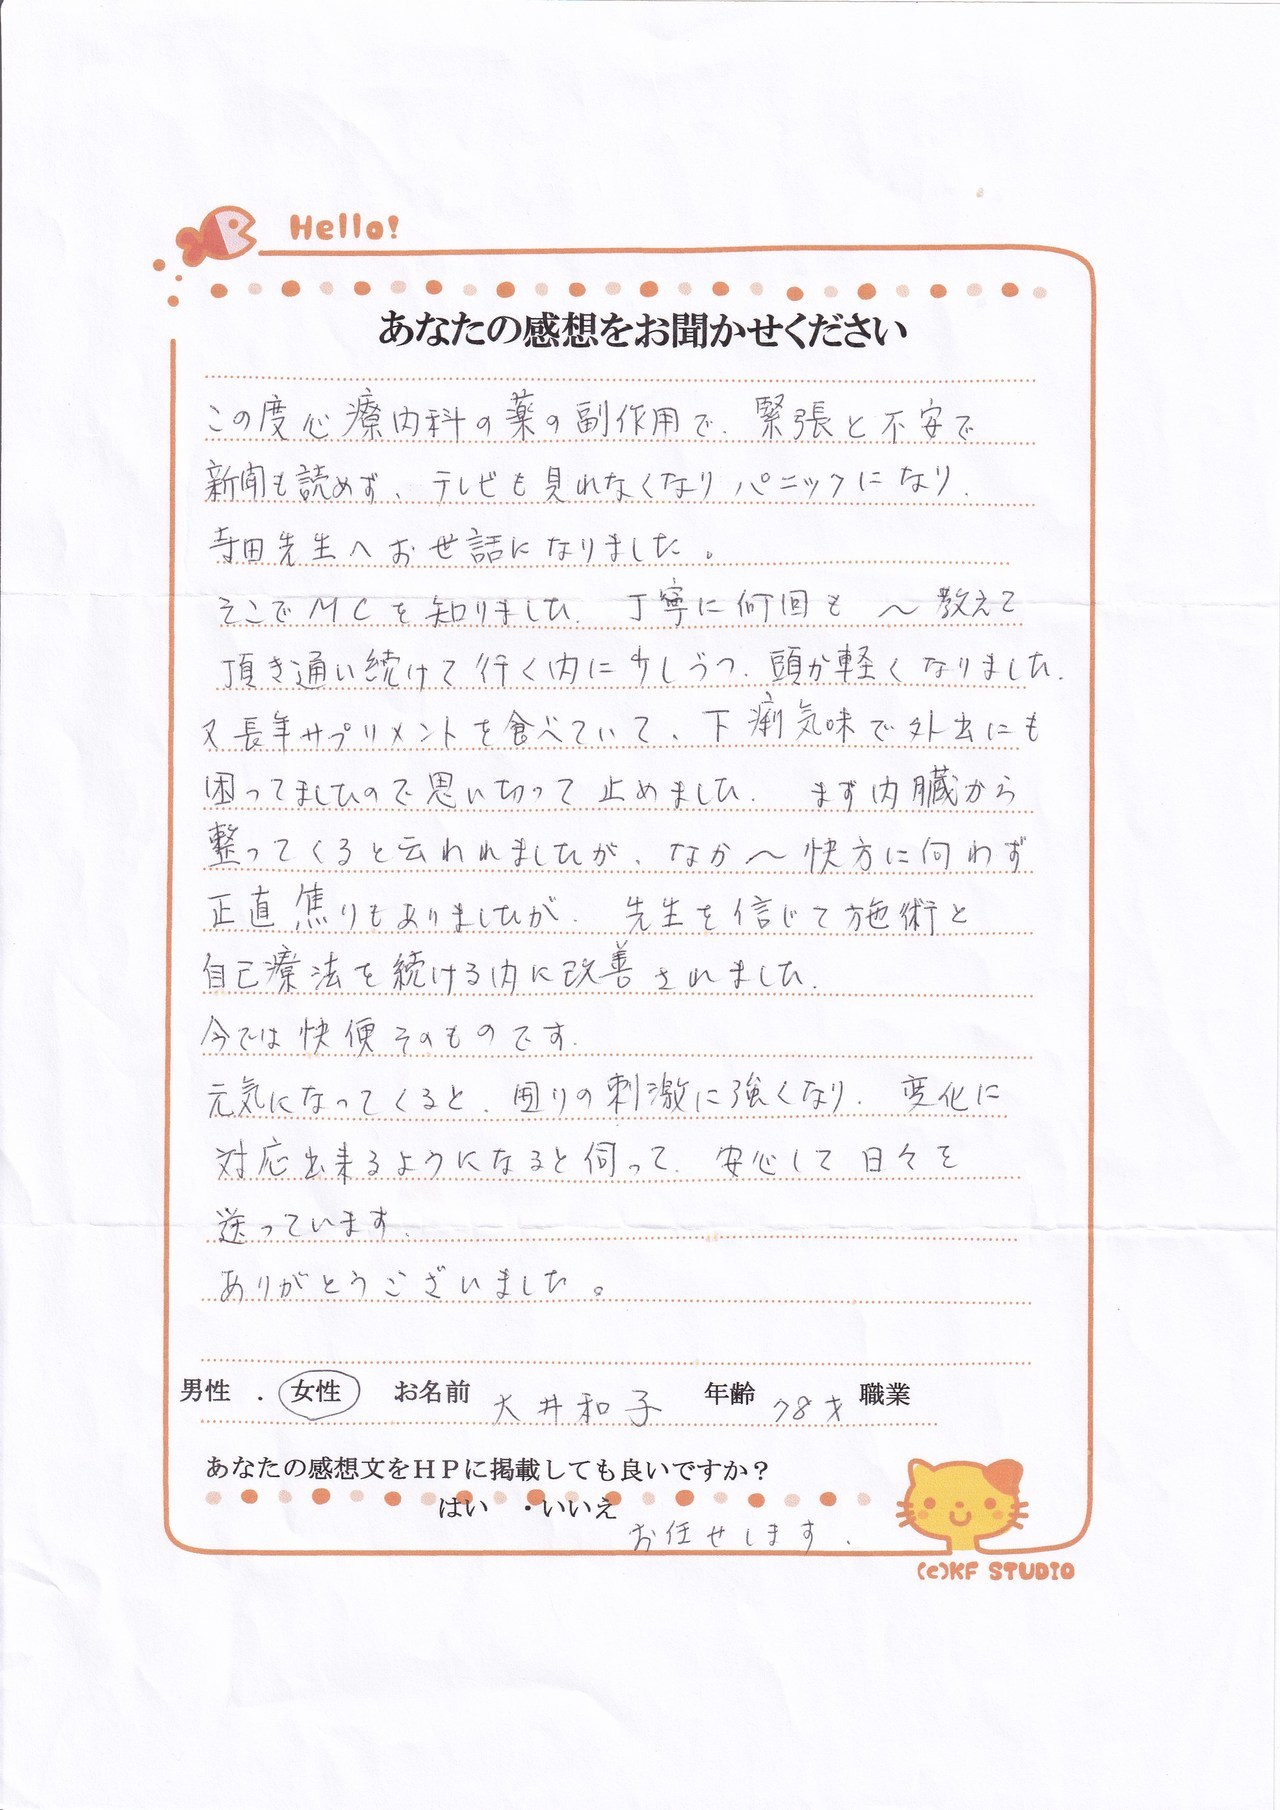 Hello!
あなたの感想をお聞かせください
この度心療内科の薬の副作用で、緊張と不安で
新聞も読めず、テレビも見れなくなりパニックになり、
寺田先生へお世話になりました。
そこでMCを知りました。丁寧に何回も〜教えて
頂き通い続けて行く内に少しづつ、頭が軽くなりました。
又長年サプリメントを食べていて、下痢気味で外出にも
困ってましたので思い切って止めました。まず内臓から
整ってくると云われましたが、なか〜快方に向わず
正直焦りもありましたが、先生を信じて施術と
自己療法を続ける内に改善されました。
今では快便そのものです。
元気になってくると、周りの刺激に強くなり、変化に
対応出来るようになると伺って、安心して日々を
送っています。
ありがとうございました。
男性 . 女性 お名前 大井和子 年齢 78才 職業
あなたの感想文をHPに掲載しても良いですか?
はい ・いいえ
お任せします.
(c)KF STUDIO